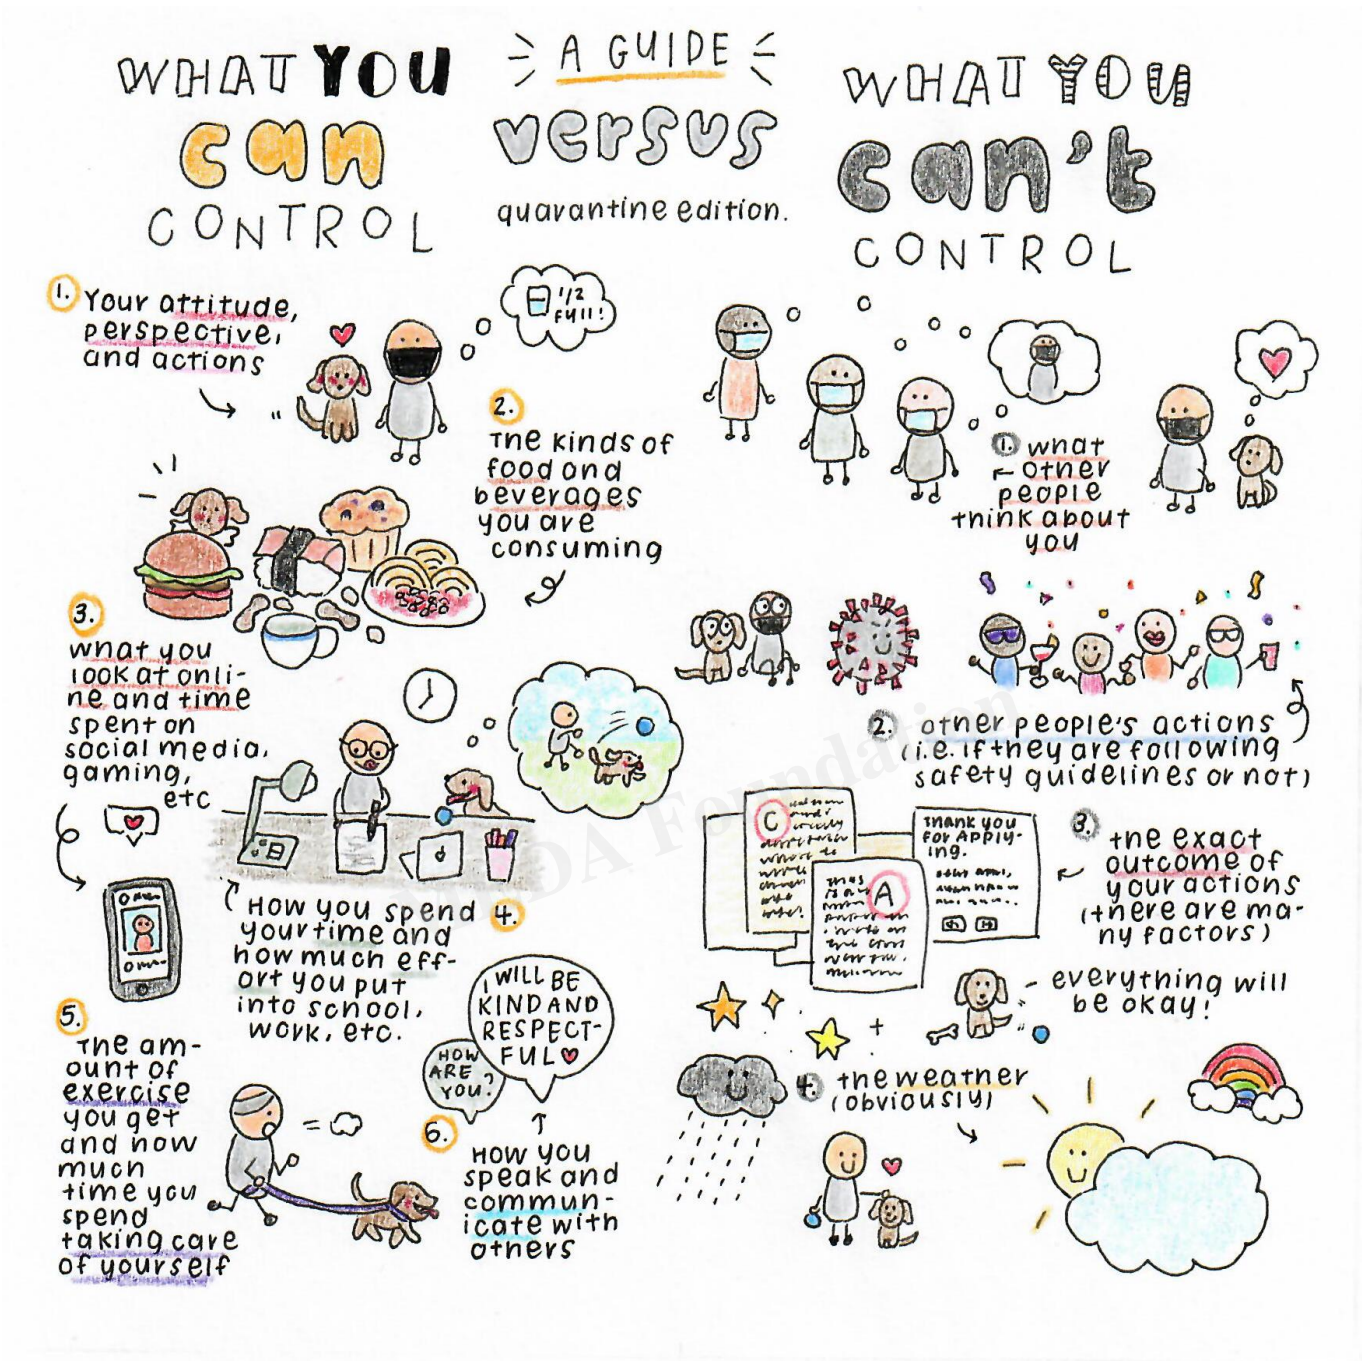 WHAT YOU
can
CONTROL
A GUIDE
versus
quarantine edition.
WHAT YOU
can't
CONTROL
1. Your attitude,
perspective,
and actions
1/2
full!
2.
The kinds of
food and
beverages
you are
consuming
3.
what you
look at onli-
ne and time
spent on
social media,
gaming,
etc
4.
How you spend
your time and
how much eff-
ort you put
into school,
work, etc.
5.
The am-
ount of
exercise
you get
and how
much
time you
spend
taking care
of yourself
I WILL BE
KIND AND
RESPECT-
FUL
HOW
ARE
YOU?
6.
How you
speak and
commun-
icate with
others
1. what
other
people
think about
you
2. other people's actions
(i.e. if they are following
safety guidelines or not)
C
A
Thank you
for apply-
ing.
3.
the exact
outcome of
your actions
(there are ma-
ny factors)
everything will
be okay!
4. the weather
(obviously)
Foundation